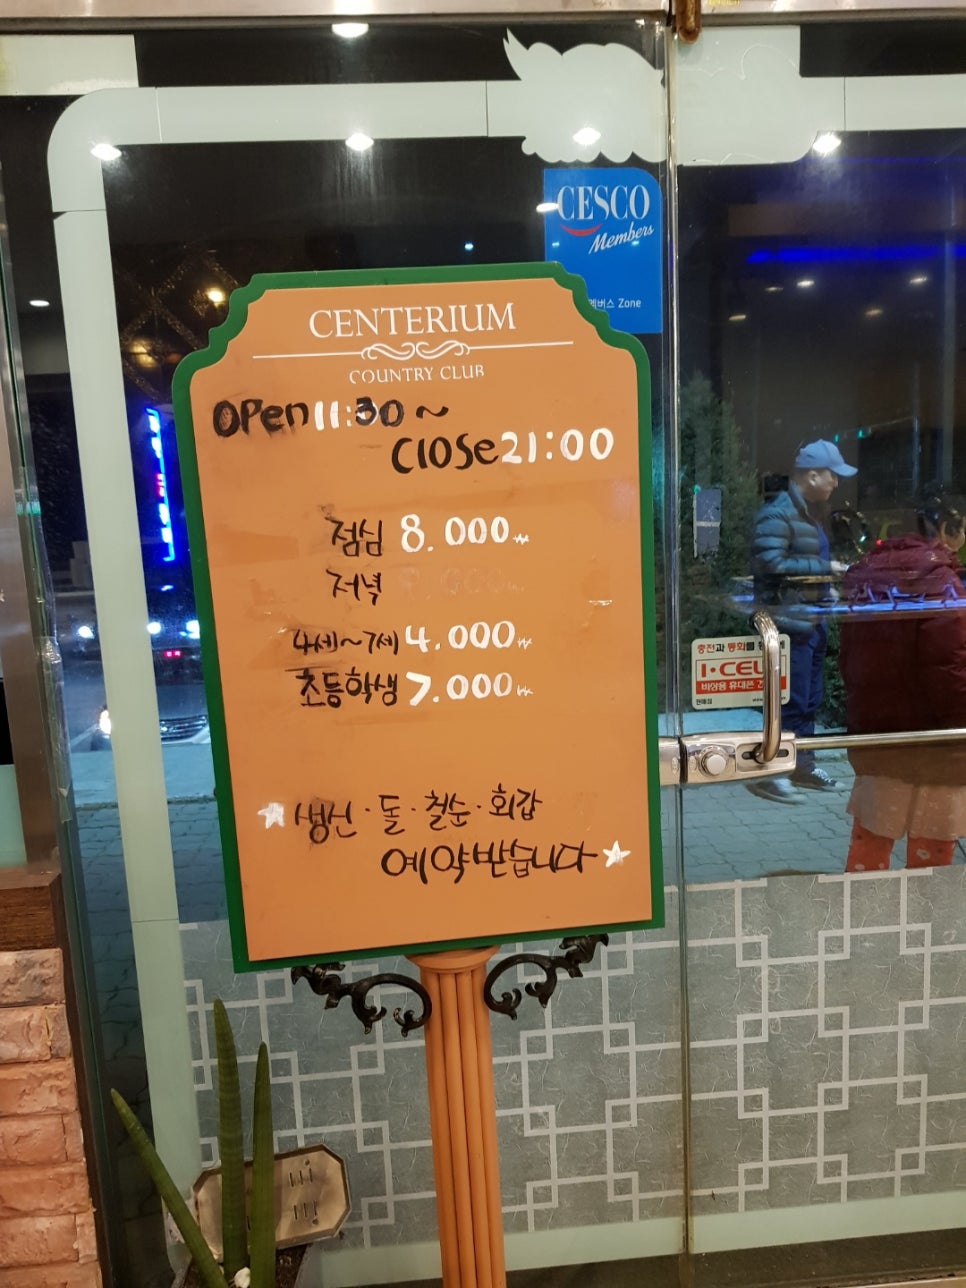 CESCO
Members
멤버스 Zone
CENTERIUM
COUNTRY CLUB
OPen 11:30 ~
Close 21:00
점심 8.000₩
저녁
4세~7세 4.000₩
초등학생 7.000₩
☆ 생신·돌·철순·회갑
예약받습니다 ☆
충전과 통화를
I·CEL
비상용 휴대폰
판매점